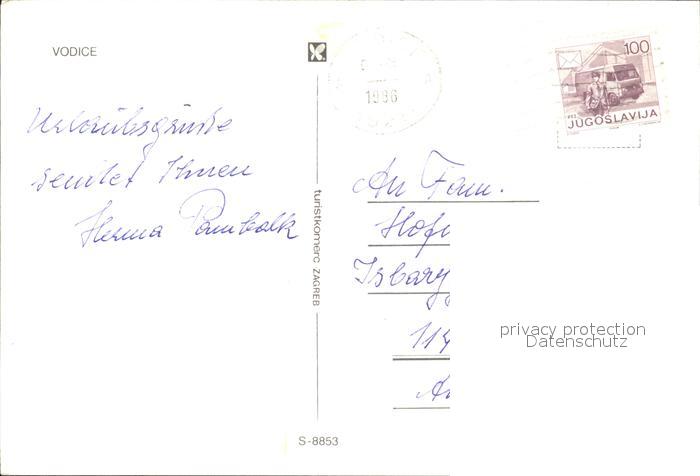 VODICE
Urlaubsgrüße
sendet Ihnen
Herma Pambalk
turistkomerc ZAGREB
S-8853
1986
100
PTT JUGOSLAVIJA
An Fam.
Hof
Isbary
114
A
privacy protection
Datenschutz